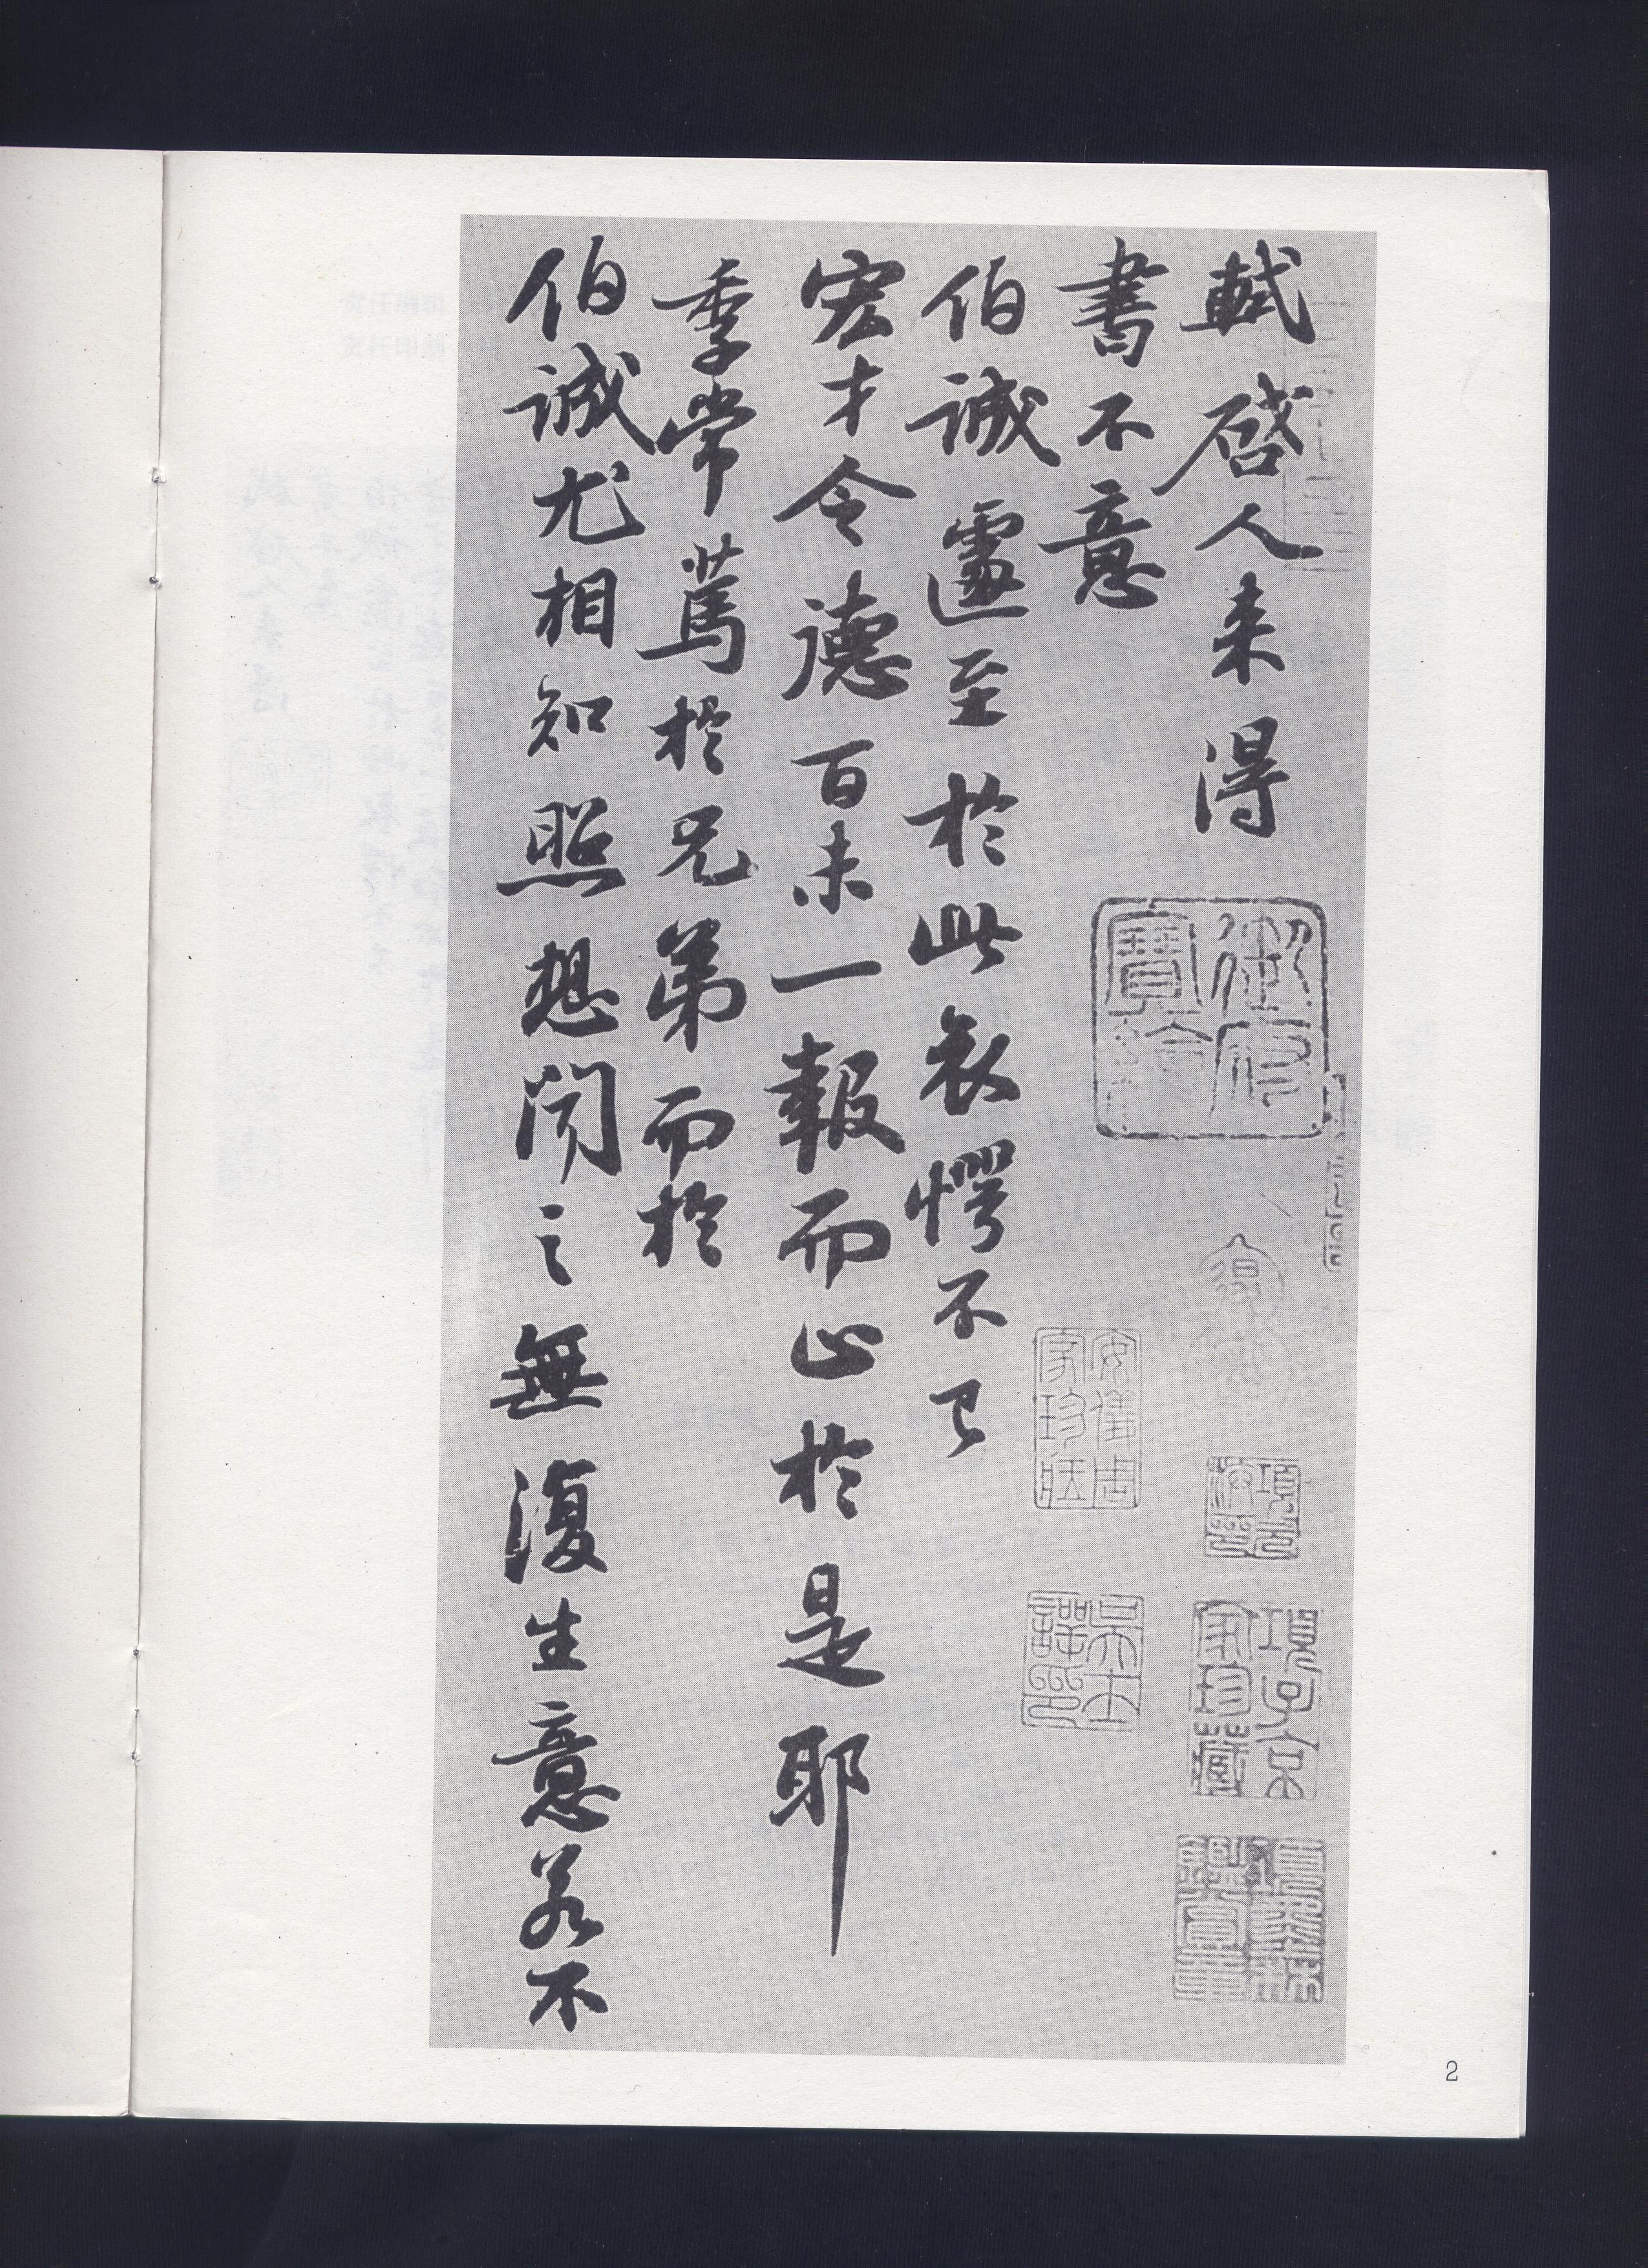 軾啓人来得
書不意
伯誠遽至於此哀愕不已
宏才令德百未一報而止於是耶
季常篤於兄弟而於
伯誠尤相知照想聞之無復生意若不
御府寶繪
安儀周家珍藏
項子京家珍藏
2